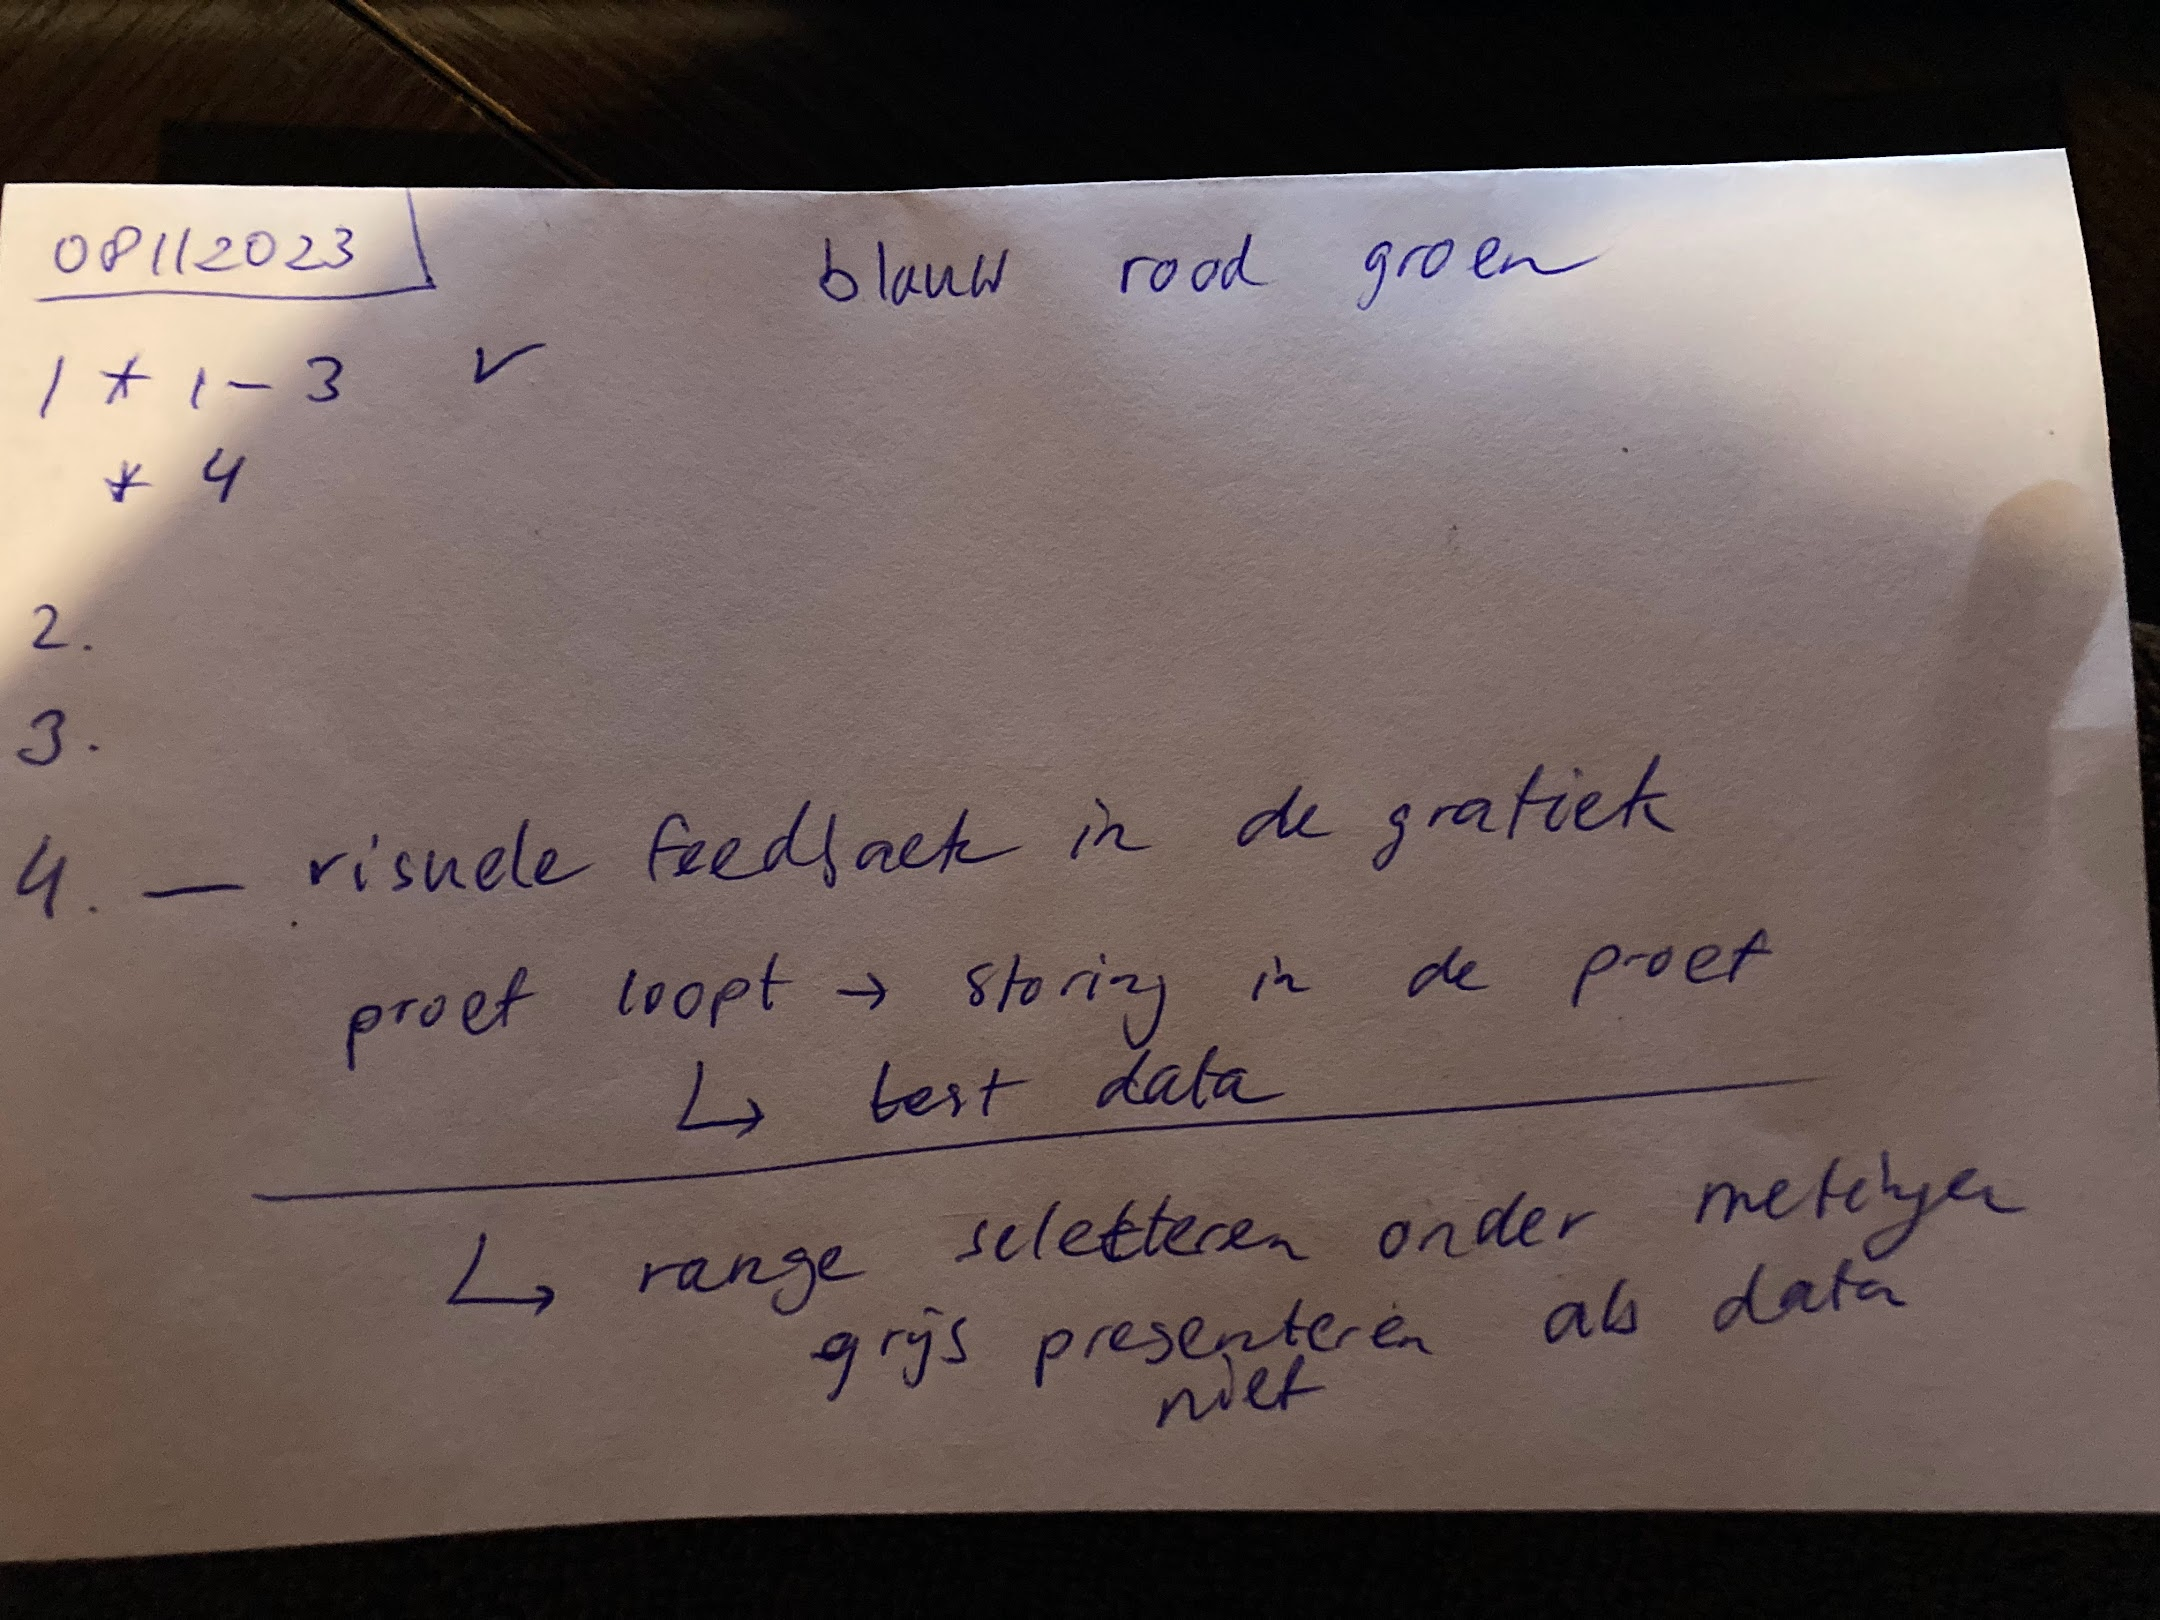 08112023
blauw rood groen
1 * 1-3 ✓
* 4
2.
3.
4. — visuele feedback in de grafiek
proef loopt → storing in de proef
↳ test data
↳ range selecteren onder metingen
grijs presenteren als data
niet